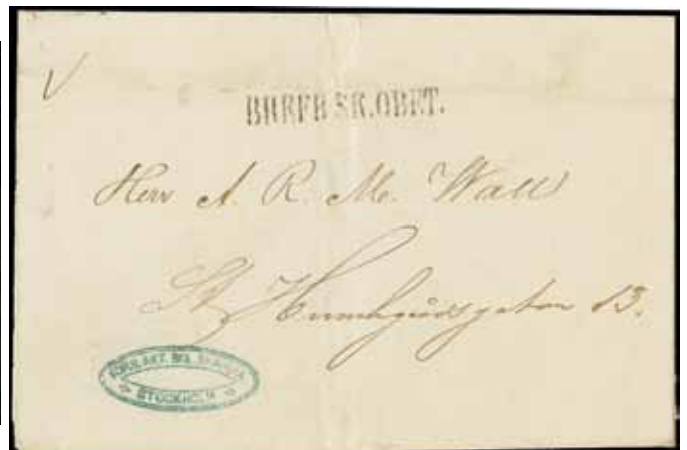 BREFB SK.OBET.
Herr A. R. Mc. Wall
St Humlegårdsgatan 13.
STOCKHOLM